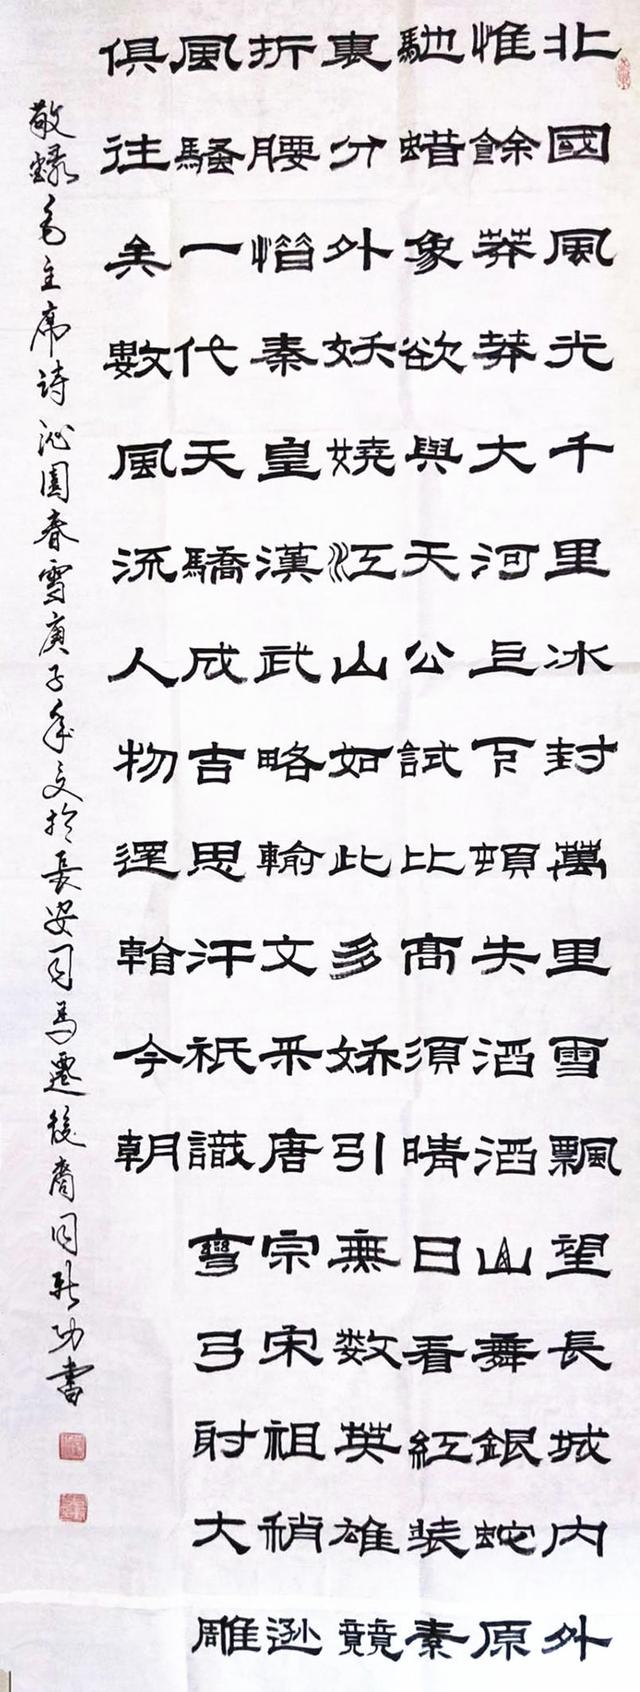 北國風光千里冰封萬里雪飄望長城內外
惟餘莽莽大河上下頓失滔滔山舞銀蛇原
馳蜡象欲與天公試比高須晴日看紅裝素
裹分外妖嬈江山如此多嬌引無数英雄競
折腰惜秦皇漢武略輸文采唐宗宋祖稍遜
風騷一代天驕成吉思汗祇識彎弓射大雕
俱往矣數風流人物還看今朝
敬錄毛主席诗沁園春雪庚子年於長安司馬遷後裔同功書